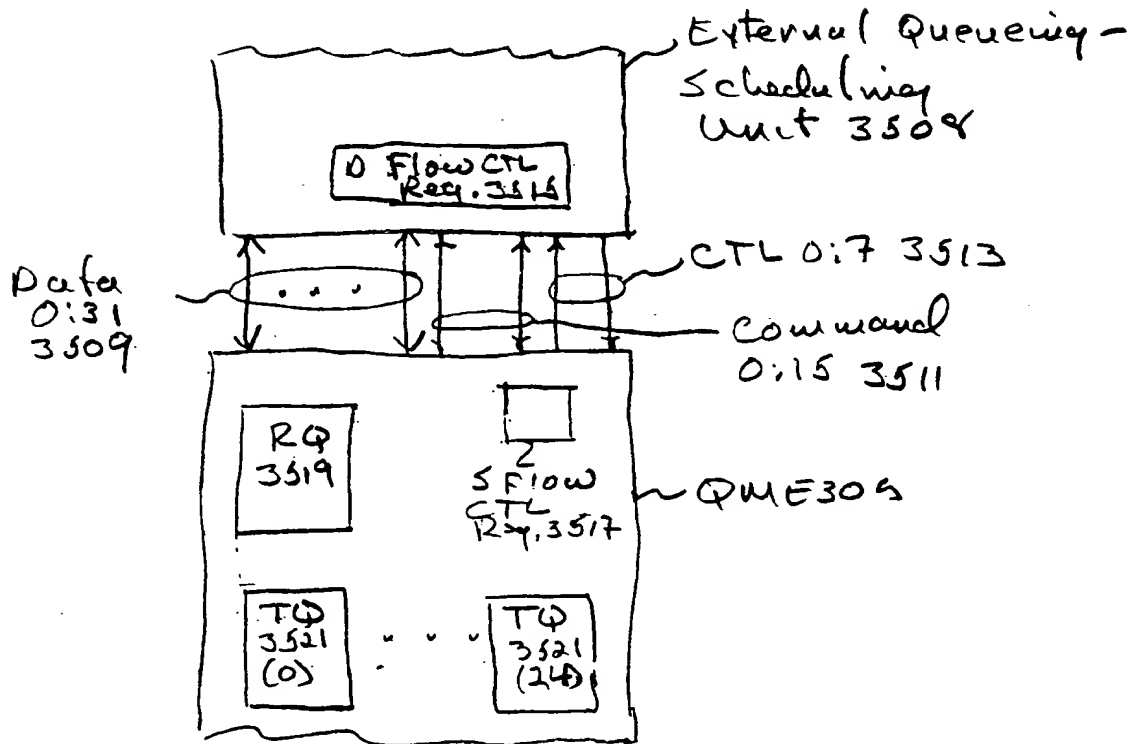 External Queueing-
Scheduling
Unit 3508
D Flow CTL
Reg. 3515
CTL 0:7 3513
Data
0:31
3509
command
0:15 3511
RQ
3519
S Flow
CTL
Reg. 3517
QME305
TQ
3521
(0)
TQ
3521
(24)